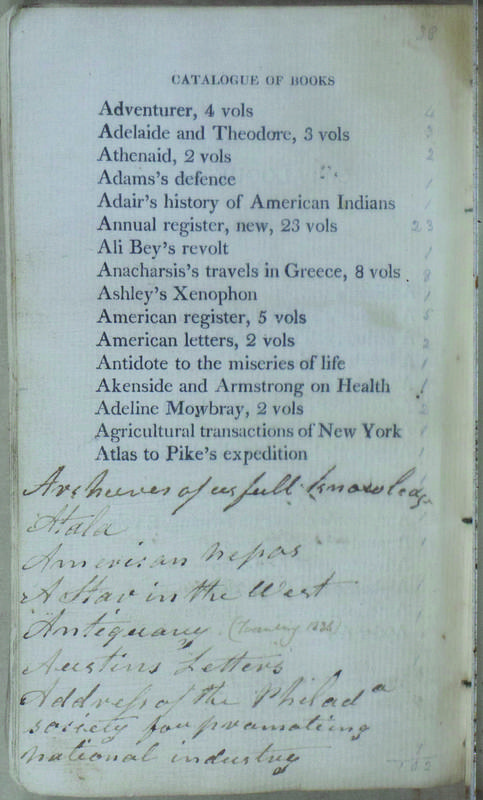 38
CATALOGUE OF BOOKS
Adventurer, 4 vols 4
Adelaide and Theodore, 3 vols 3
Athenaid, 2 vols 2
Adams's defence 1
Adair's history of American Indians 1
Annual register, new, 23 vols 23
Ali Bey's revolt 1
Anacharsis's travels in Greece, 8 vols 8
Ashley's Xenophon 1
American register, 5 vols 5
American letters, 2 vols 2
Antidote to the miseries of life 1
Akenside and Armstrong on Health 1
Adeline Mowbray, 2 vols 2
Agricultural transactions of New York 1
Atlas to Pike's expedition 1
Archieves of usfull knowledg
Atala
American nepos
A Star in the West
Antiquary
Austins Letters
Address of the Philada
society for promoting
national industry 1